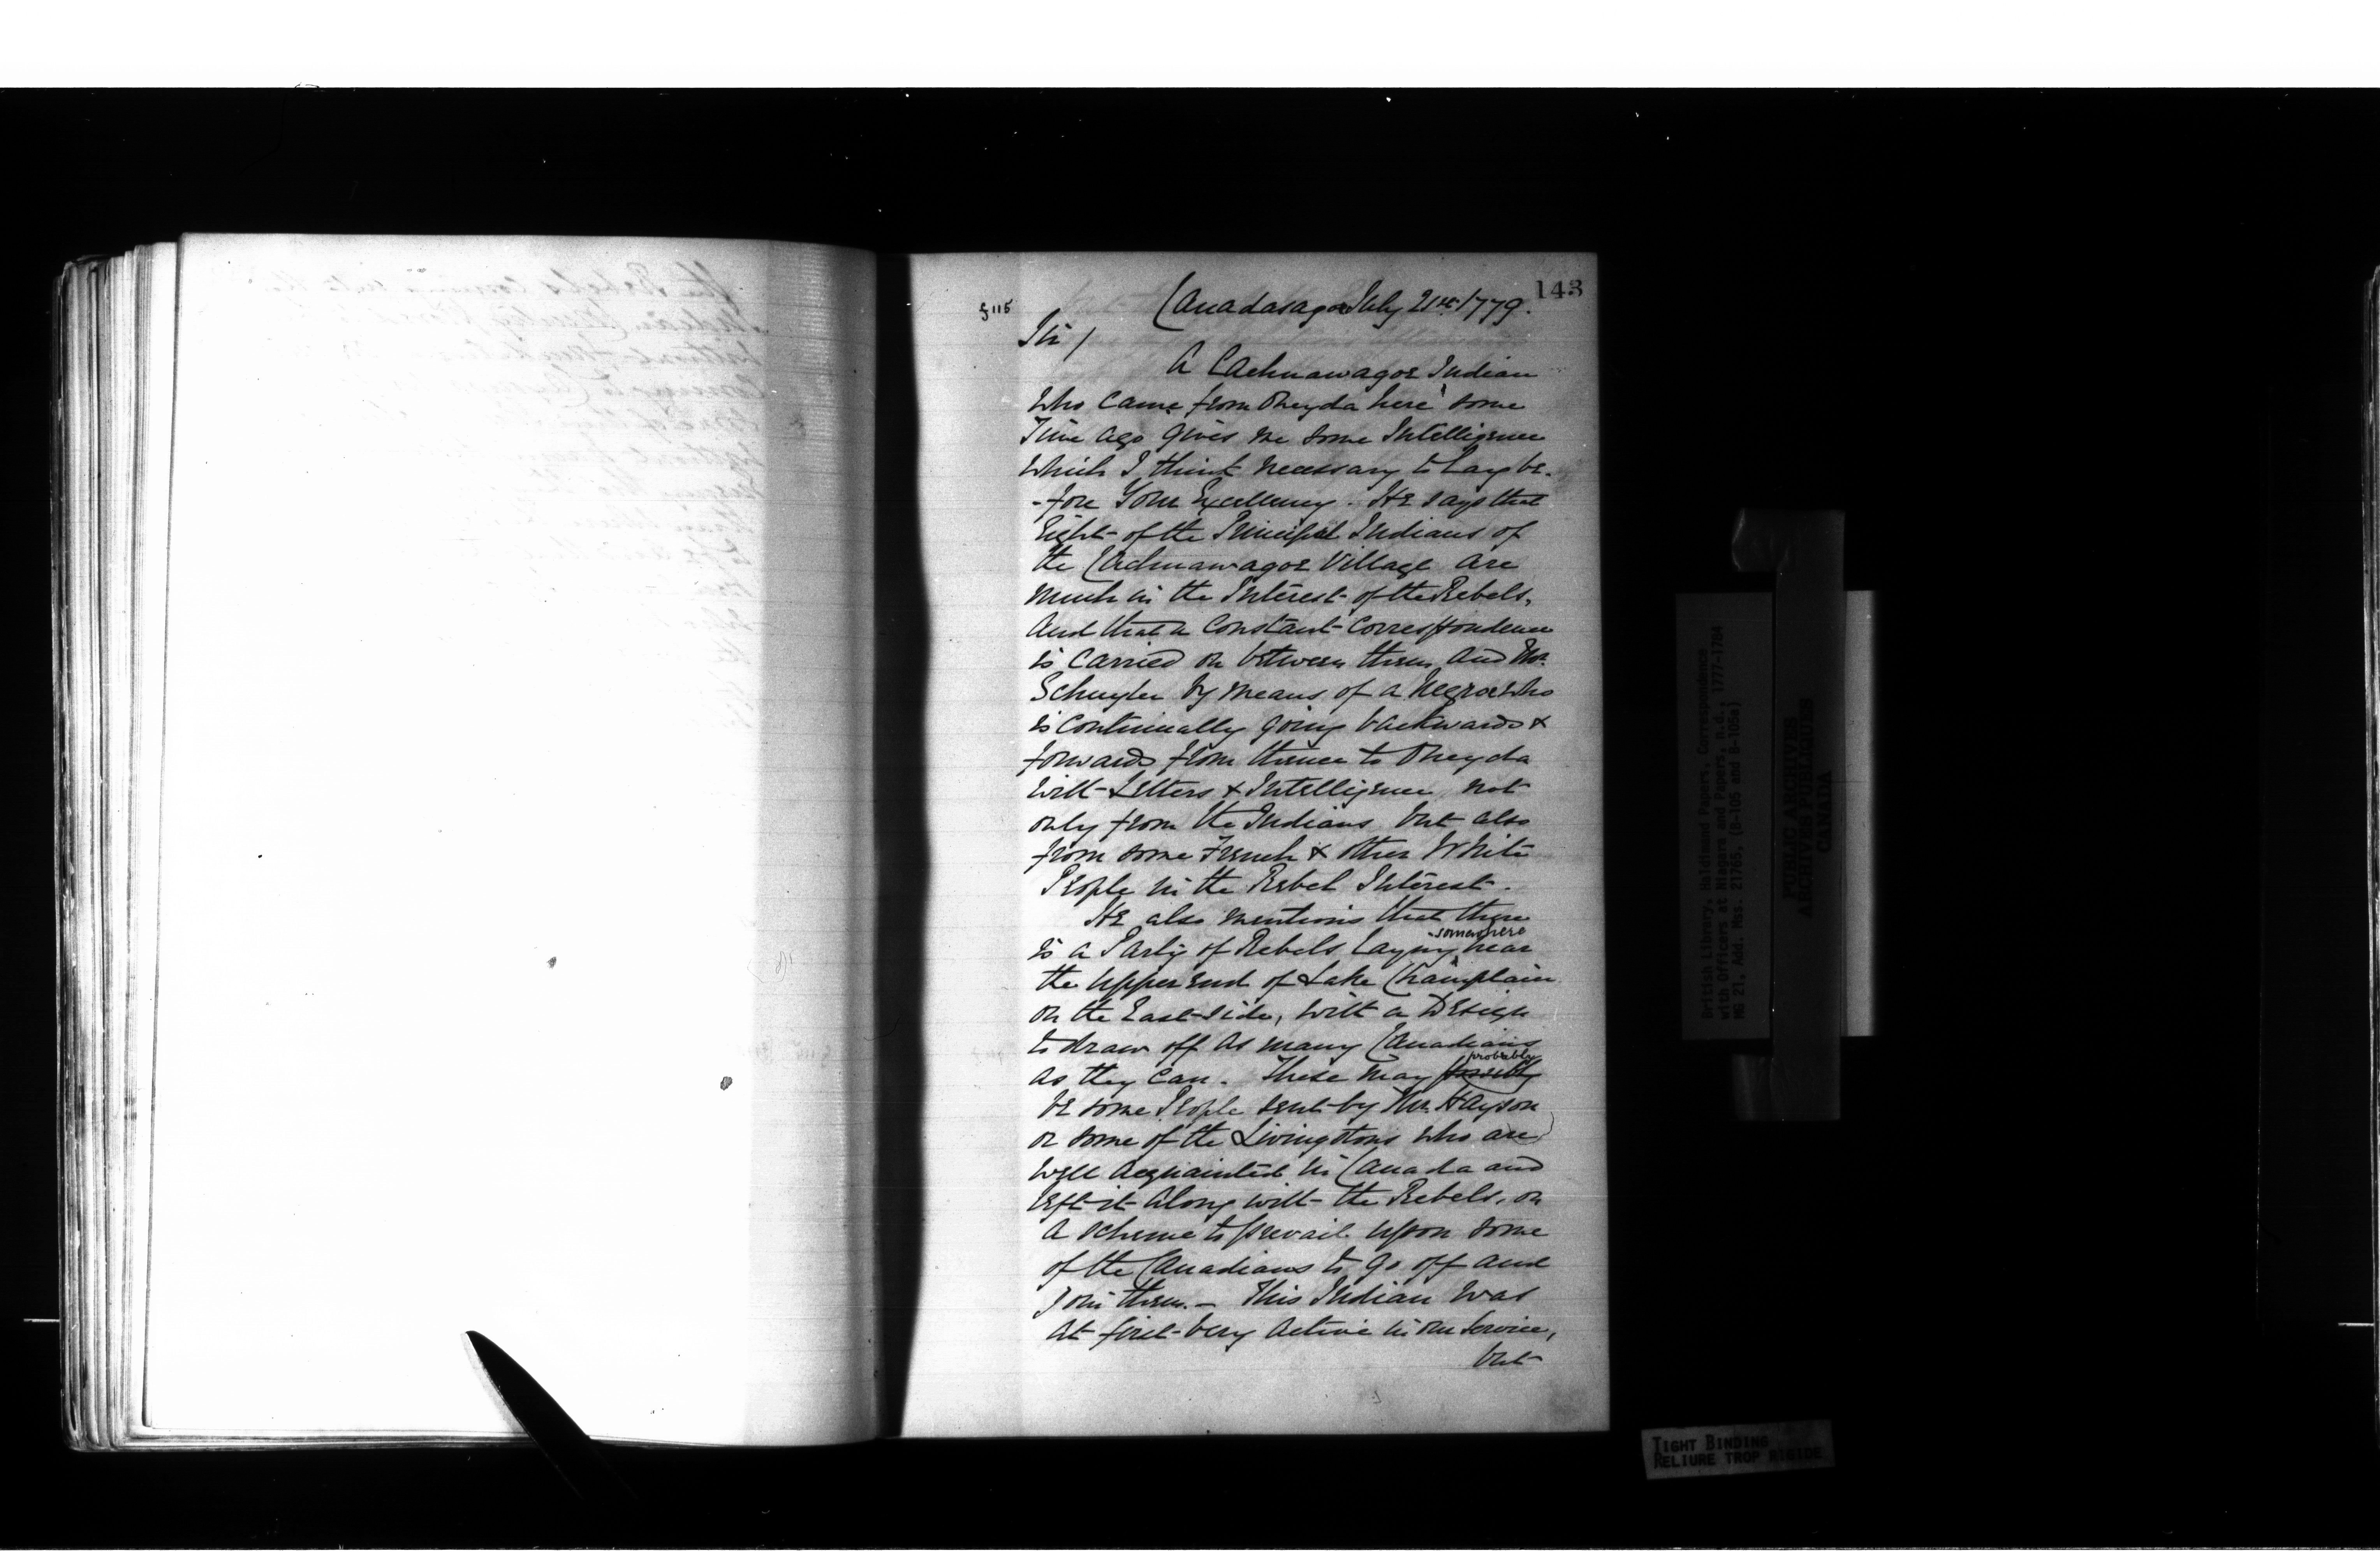 143
f 115
Canadasagoe July 21st 1779.
Sir /
A Cachnawagoe Indian
who came from Oneyda here some
Time ago gives me some Intelligence
which I think necessary to Lay be-
-fore Your Excellency. He says that
Eight of the Principal Indians of
the Cachnawagoe Village are
much in the Interest of the Rebels,
And that a Constant Correspondence
is Carried on between them and
Schuyler by means of a Negroe who
is Continually going backwards &
forwards from thence to Oneyda
with Letters & Intelligence not
only from the Indians but also
from some French & other White
People in the Rebel Interest.
He also mentions that there
is a Party of Rebels Laying somewhere near
the upper end of Lake Champlain
on the East side, with a Design
to draw off as many Canadians
as they can. These may possibly probably
be some People sent by Mr. Hayson
or some of the Livingstons who are
well acquainted in Canada and
left it along with the Rebels, on
a scheme to prevail upon some
of the Canadians to go off and
Join them. — This Indian was
at first very active in our Service,
but
British Library, Haldimand Papers, Correspondence
with Officers at Niagara and Papers, n.d., 1777-1784
MG 21, Add. Mss. 21765, (B-105 and B-105a)
PUBLIC ARCHIVES
ARCHIVES PUBLIQUES
CANADA
TIGHT BINDING
RELIURE TROP RIGIDE